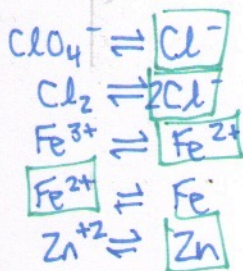 ClO₄⁻ ⇌ Cl⁻
Cl₂ ⇌ 2Cl⁻
Fe³⁺ ⇌ Fe²⁺
Fe²⁺ ⇌ Fe
Zn⁺² ⇌ Zn